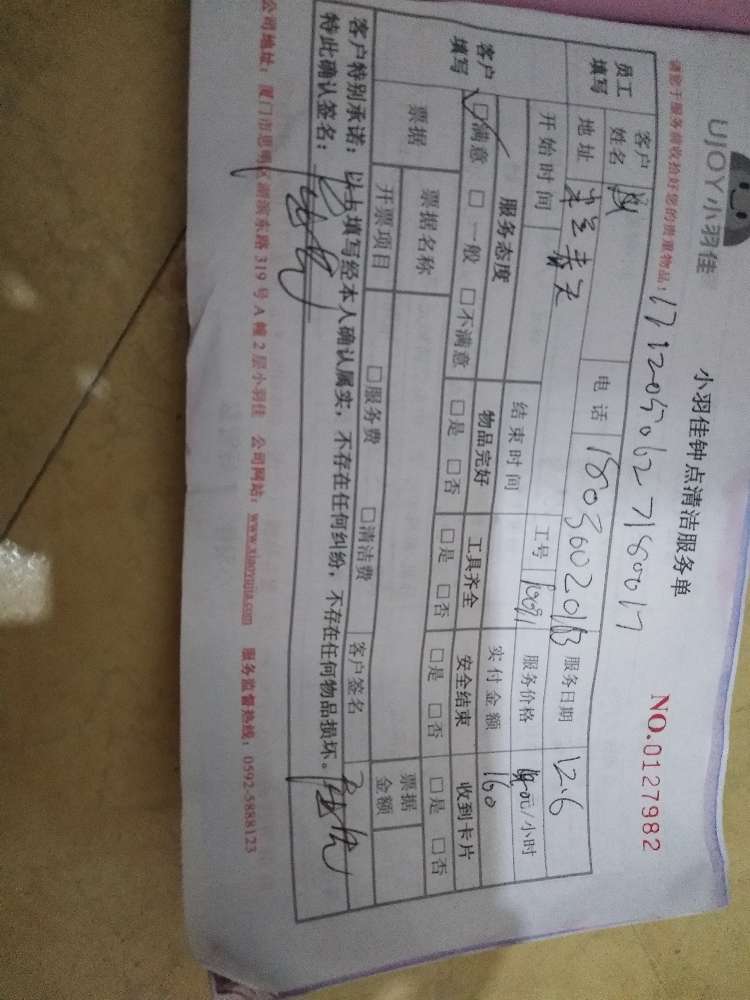 UJOY小羽佳
小羽佳钟点清洁服务单
NO.0127982
请您于服务前收拾好您的贵重物品！
1712050627180017
员工填写 客户姓名 电话 18036020103 服务日期 12.6
地址 春天 工号 服务价格 元/小时
开始时间 结束时间 实付金额 160
客户填写 服务态度 物品完好 工具齐全 安全结束 收到卡片
□满意 □一般 □不满意 □是 □否 □是 □否 □是 □否 □是 □否
票据 票据名称 票据金额
开票项目 □服务费 □清洁费 客户签名
客户特别承诺：以上填写经本人确认属实，不存在任何纠纷，不存在任何物品损坏。
特此确认签名：
公司地址：厦门市思明区湖滨东路319号A幢2层小羽佳 公司网站：www.xiaoyujia.com 服务监督热线：0592-5888123